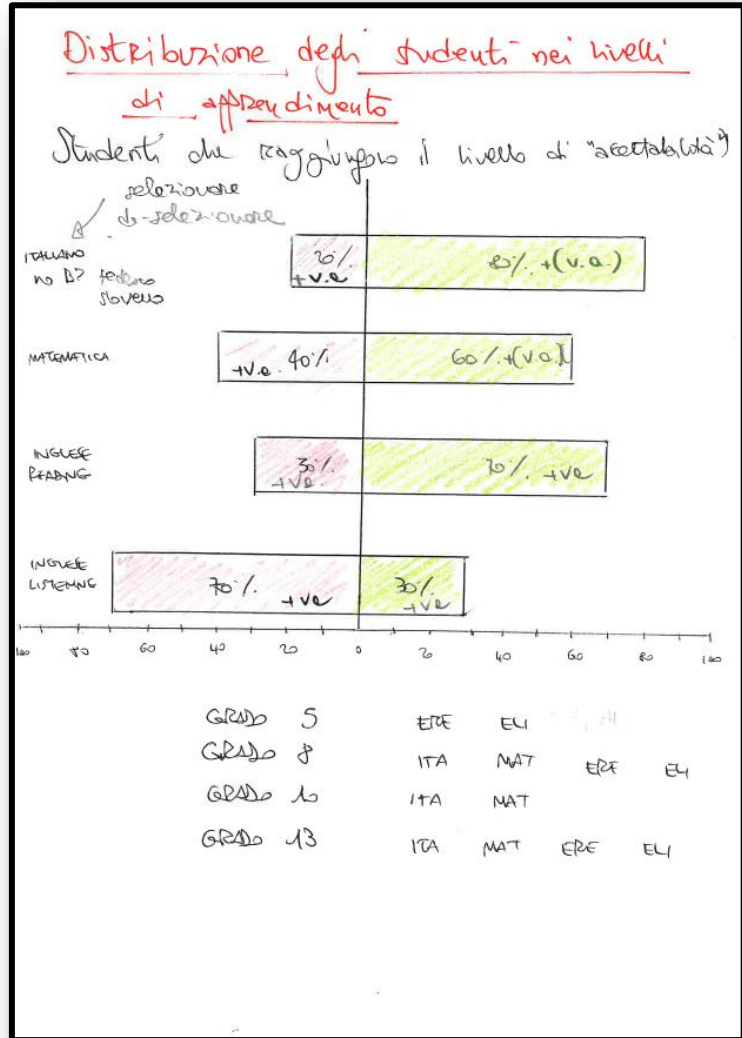 Distribuzione degli studenti nei livelli
di apprendimento
Studenti che raggiungono il livello di "accettabilità"
selezionare
de-selezionare
ITALIANO
no B?
sloveno
20%
+v.a
80% +(v.a.)
MATEMATICA
+v.a. 40%
60% +(v.a.)
INGLESE
READING
30%
+va.
70% +va
INGLESE
LISTENING
70% +va
30%
+va
100 80 60 40 20 0 20 40 60 80 100
GRADO 5 ERE ELI
GRADO 8 ITA MAT ERE ELI
GRADO 10 ITA MAT
GRADO 13 ITA MAT ERE ELI